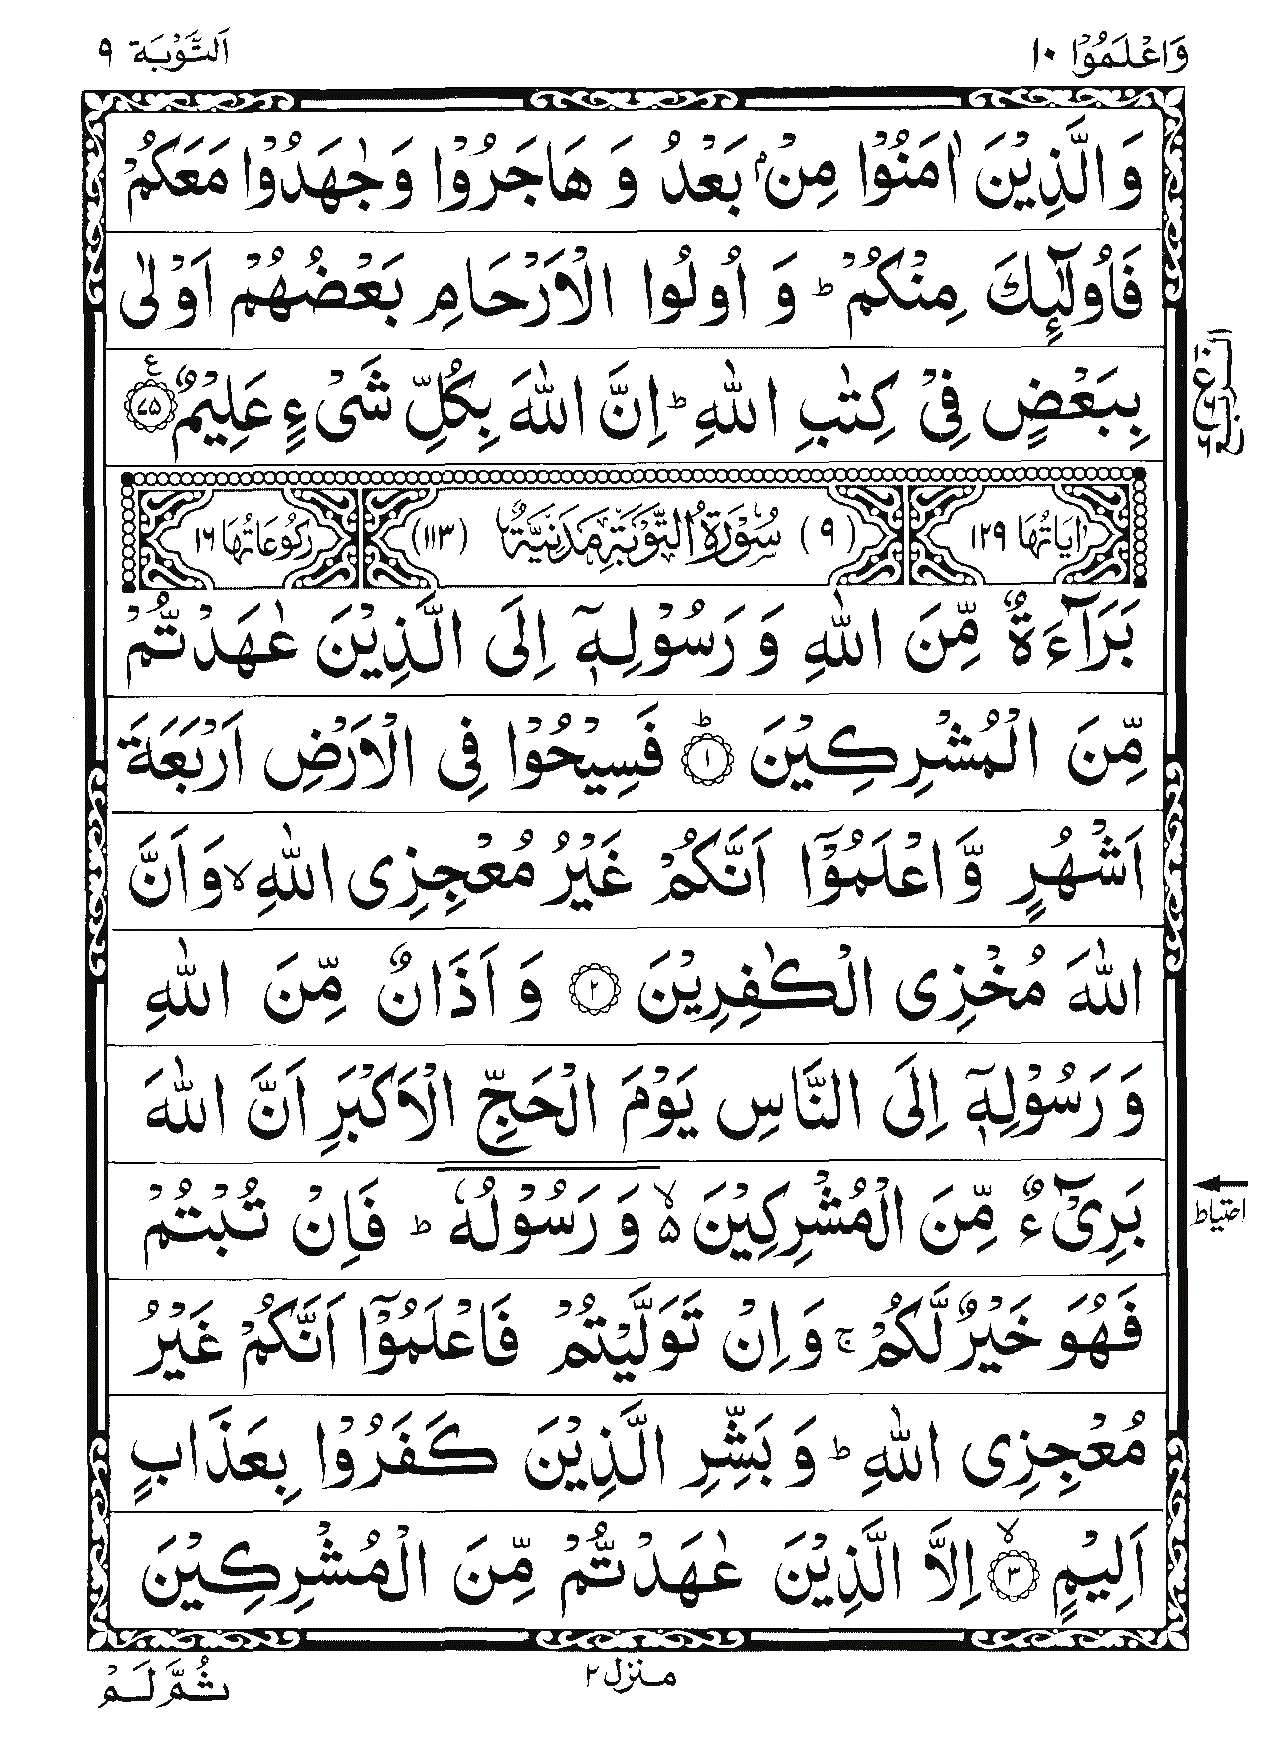 وَاعْلَمُوْٓا ١٠
اَلتَّوْبَة ٩
وَالَّذِيْنَ اٰمَنُوْا مِنْۢ بَعْدُ وَ هَاجَرُوْا وَجٰهَدُوْا مَعَكُمْ
فَاُولٰٓئِكَ مِنْكُمْ ؕ وَ اُولُوا الْاَرْحَامِ بَعْضُهُمْ اَوْلٰى
بِبَعْضٍ فِيْ كِتٰبِ اللّٰهِ ؕ اِنَّ اللّٰهَ بِكُلِّ شَيْءٍ عَلِيْمٌ ۧ ﴿٧٥﴾
اٰيَاتُهَا ١٢٩ (٩) سُوْرَةُ التَّوْبَةِ مَدَنِيَّةٌ (١١٣) رُكُوْعَاتُهَا ١٦
بَرَآءَةٌ مِّنَ اللّٰهِ وَ رَسُوْلِهٖۤ اِلَى الَّذِيْنَ عٰهَدْتُّمْ
مِّنَ الْمُشْرِكِيْنَ ؕ ﴿١﴾ فَسِيْحُوْا فِى الْاَرْضِ اَرْبَعَةَ
اَشْهُرٍ وَّاعْلَمُوْۤا اَنَّكُمْ غَيْرُ مُعْجِزِى اللّٰهِ ۙ وَاَنَّ
اللّٰهَ مُخْزِى الْكٰفِرِيْنَ ﴿٢﴾ وَ اَذَانٌ مِّنَ اللّٰهِ
وَ رَسُوْلِهٖۤ اِلَى النَّاسِ يَوْمَ الْحَجِّ الْاَكْبَرِ اَنَّ اللّٰهَ
بَرِيْٓءٌ مِّنَ الْمُشْرِكِيْنَ ۙ۬ وَ رَسُوْلُهٗ ؕ فَاِنْ تُبْتُمْ
احتیاط
فَهُوَ خَيْرٌ لَّكُمْ ۚ وَاِنْ تَوَلَّيْتُمْ فَاعْلَمُوْۤا اَنَّكُمْ غَيْرُ
مُعْجِزِى اللّٰهِ ؕ وَ بَشِّرِ الَّذِيْنَ كَفَرُوْا بِعَذَابٍ
اَلِيْمٍ ۙ ﴿٣﴾ اِلَّا الَّذِيْنَ عٰهَدْتُّمْ مِّنَ الْمُشْرِكِيْنَ
منزل ٢
ثُمَّ لَمْ